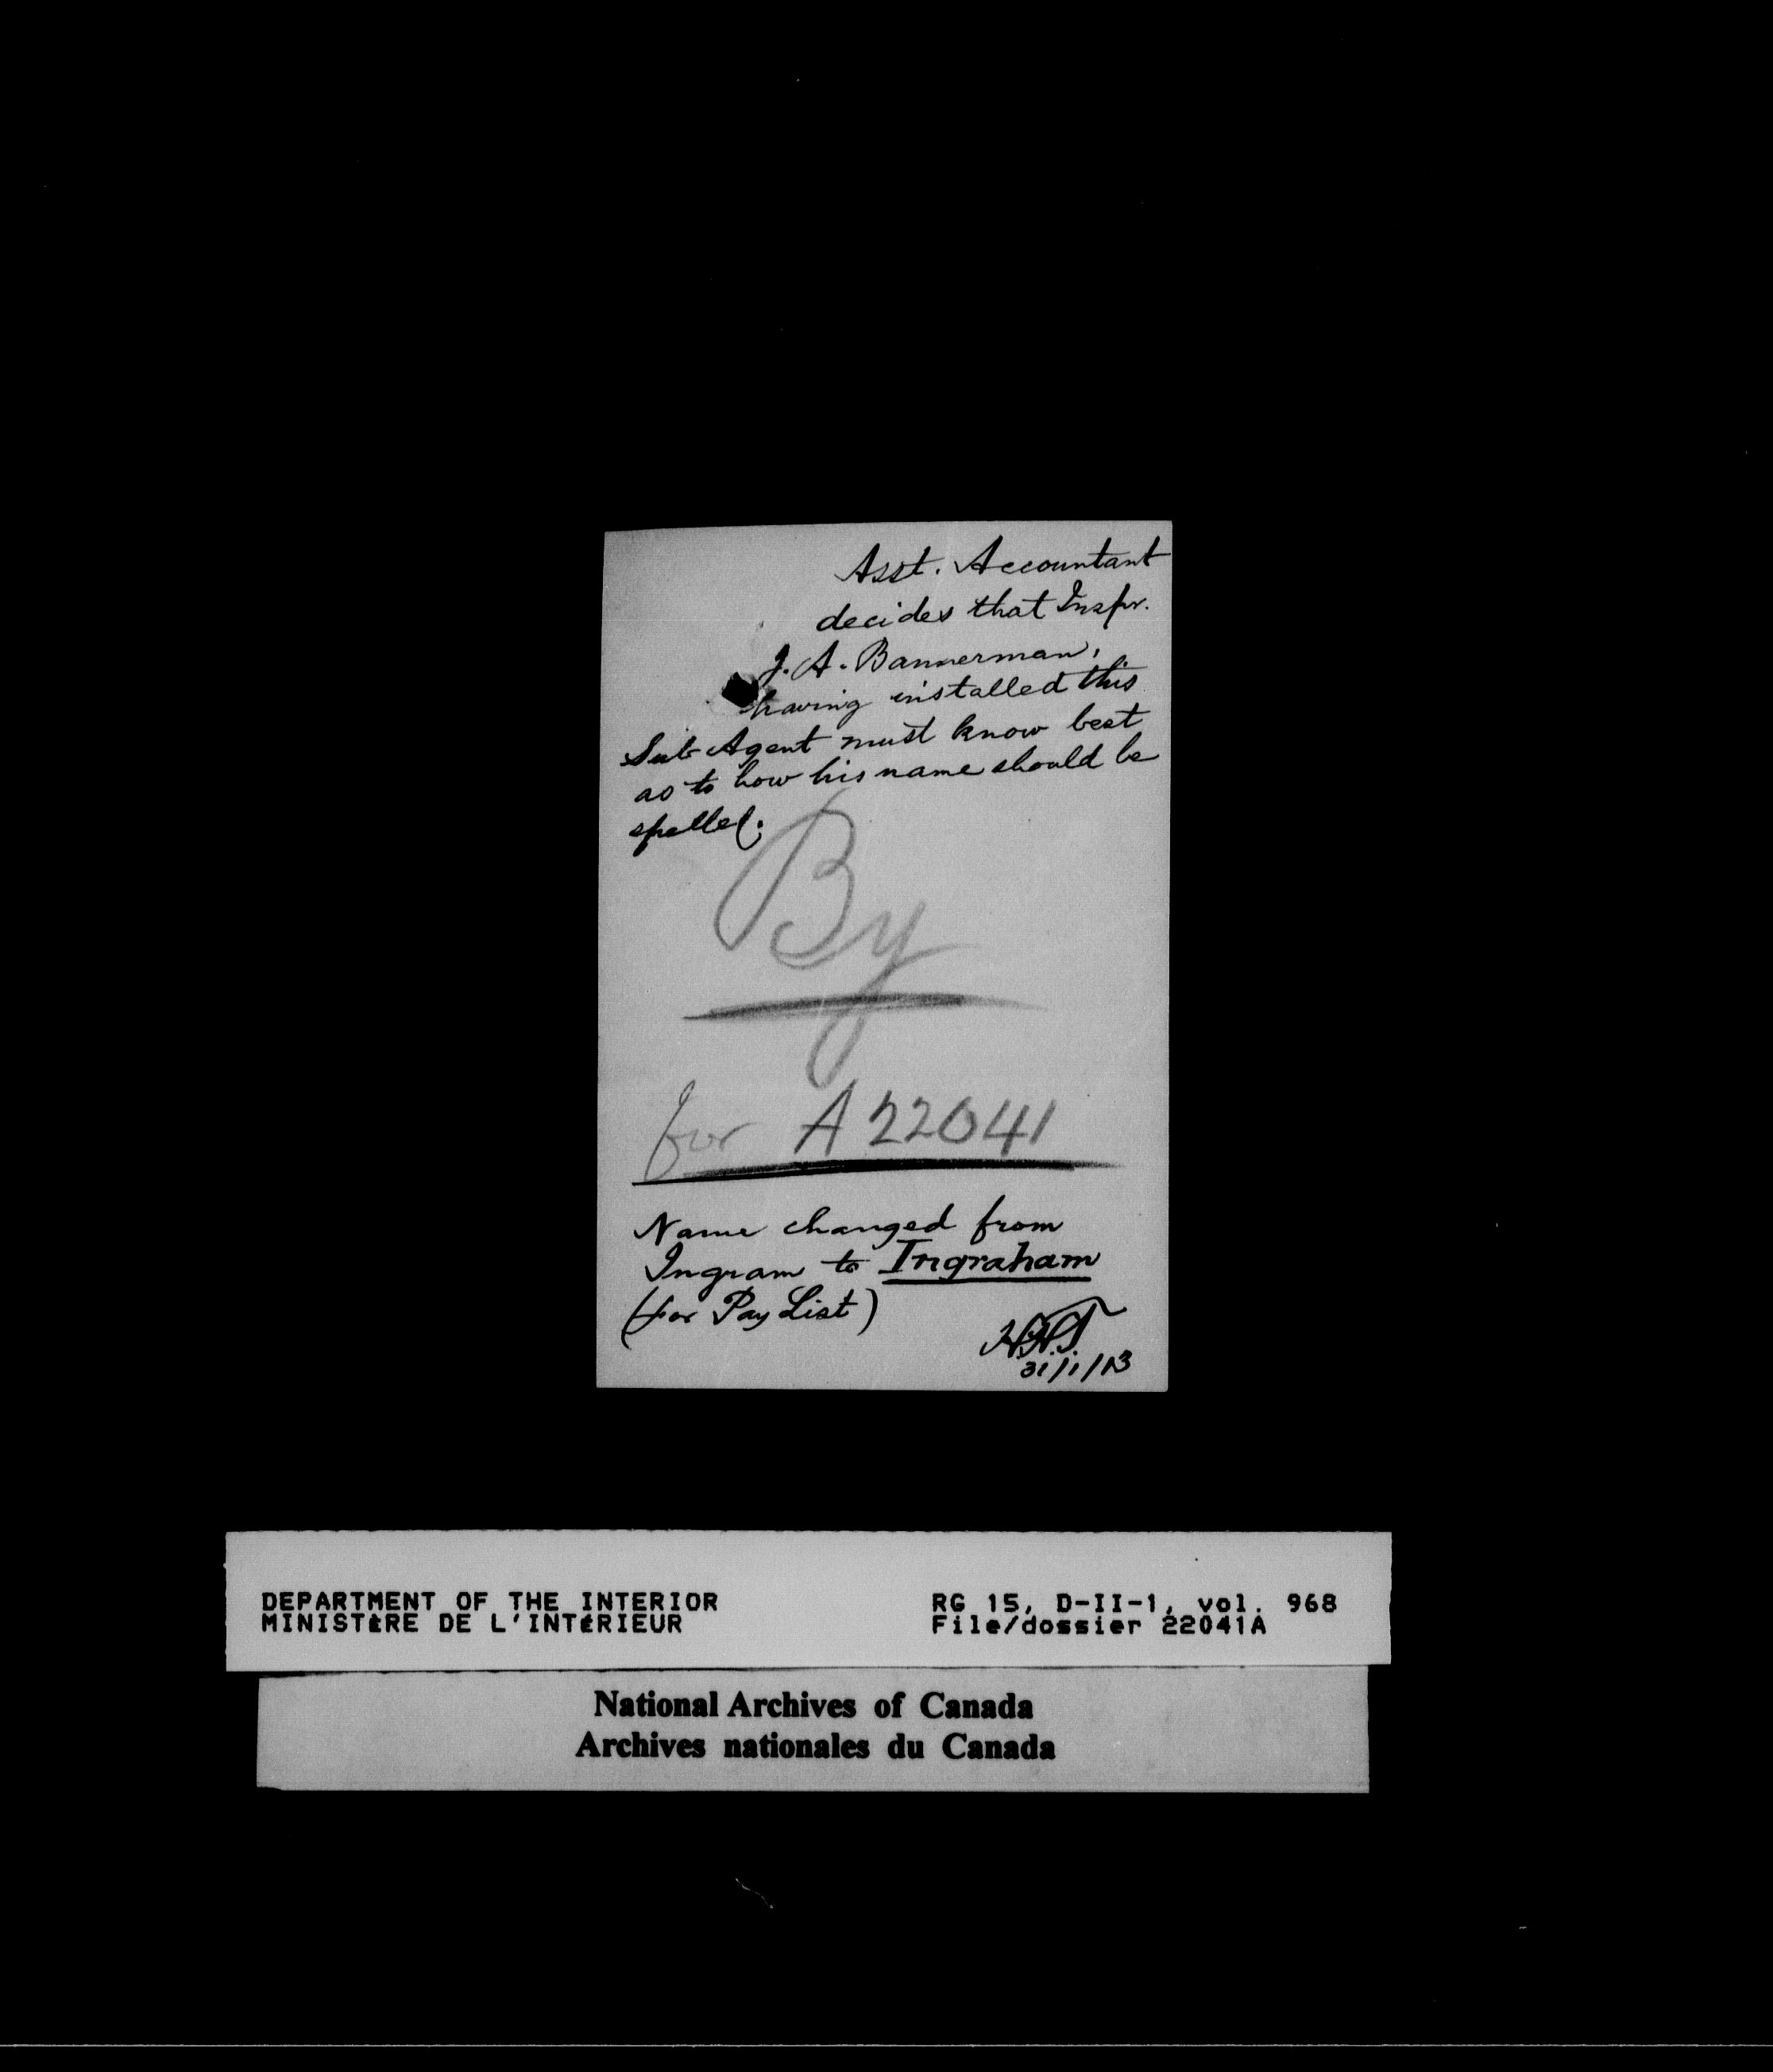 Asst. Accountant
decides that Inspr.
J. A. Bannerman,
having installed this
Sub-Agent must know best
as to how his name should be
spelled.
By
for A 22041
Name changed from
Ingram to Ingraham
(for Pay List)
31/1/13
DEPARTMENT OF THE INTERIOR
MINISTÈRE DE L'INTÉRIEUR
RG 15, D-II-1, vol. 968
File/dossier 22041A
National Archives of Canada
Archives nationales du Canada